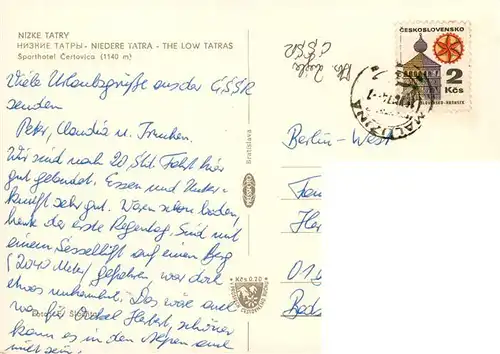 NIZKE TATRY
НИЗКИЕ ТАТРЫ · NIEDERE TATRA · THE LOW TATRAS
Sporthotel Čertovica (1140 m)
Viele Urlaubsgrüße aus der ČSSR
senden
Peter, Claudia u.
Wir sind nach 20 Std. Fahrt hier
gut gelandet. Essen und Unter-
kunft sehr gut. Waren schon baden,
heute der erste Regentag. Sind mit
einem Sessellift auf einen Berg
(2040 Meter) gefahren war doch
etwas unheimlich. Das wäre auch
was für Onkel Herbert, schöner
kann es in den Alpen auch
nicht sein.
Bratislava
PRESSFOTO
Kčs 0,70
ČSSR
ČESKOSLOVENSKO
2
Kčs
MALUZINA
Berlin-West
Fam
Her
01
Bad